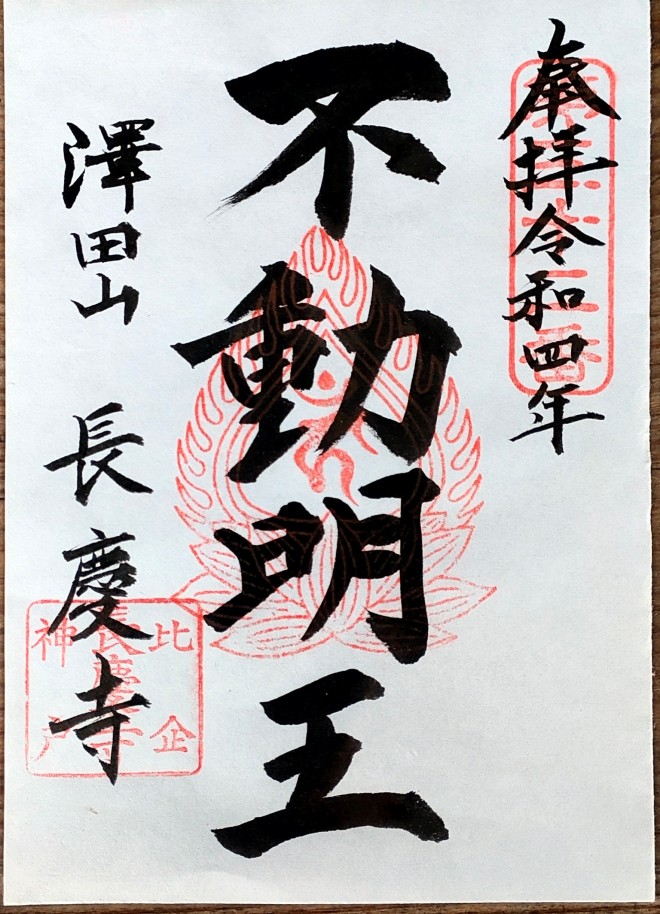 奉拝令和四年
不動明王
澤田山 長慶寺
比企
長慶寺
神戸